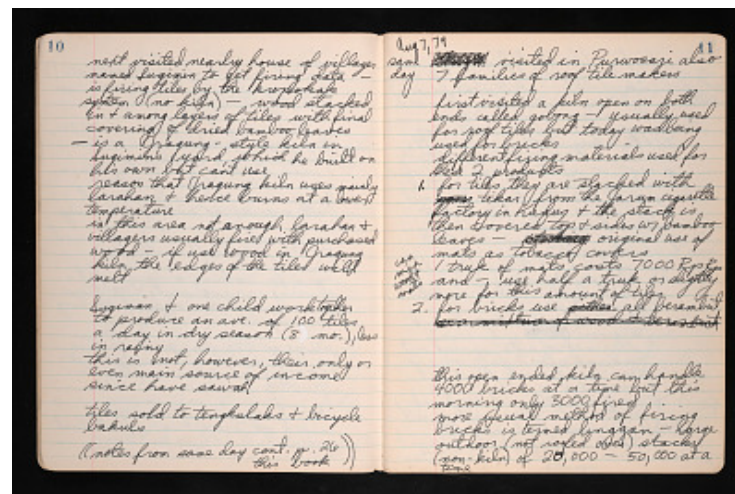 10
next visited nearby house of villager
named Suginin to get firing data —
is firing tiles by the
system (no kiln) — wood stacked
in + among layers of tiles with final
covering of dried bamboo leaves
— is a Tragung-style kiln in
Suginin's yard, which he built on
his own but cant use
reason that Tragung kiln uses mainly
larahan + hence burns at a lower
temperature
in this area not enough larahan +
villagers usually fire with purchased
wood — if use wood in Tragung
kiln, the edges of the tiles will
melt
Suginin + one child work together
to produce an av. of 100 tiles
a day in dry season (8 mo.), less
in rainy
this is not, however, their only or
even main source of income
since have sawah
tiles sold to tengkulaks + bicycle
bakuls
((notes from same day cont. p. 26
this book))
11
Aug 7, 79
same visited in Purwosari also
day 7 families of roof tile makers
first visited a kiln open on both
ends called gotong — usually used
for roof tiles but today was being
used for bricks
different firing materials used for
these 2 products
1. for tiles they are stacked with
tikar from the Jarum cigarette
factory in Kudus + the stack is
then covered top + sides w/ bamboo
leaves — original use of
mats as tobacco covers
1 truk of mats costs 7000 Rp
and use half a truk or slightly
more for this amount of tiles
2. for bricks use
this open ended kiln can handle
4000 bricks at a time but this
morning only 3000 fired
more usual method of firing
bricks is termed linggan — large
outdoor (not roofed over) stacks
(non-kiln) of 20,000 — 50,000 at a
time